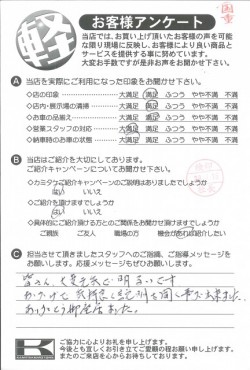 軽
お客様アンケート
当店では、お買い上げ頂いたお客様の声を可能
な限り現場に反映し、お客様により良い商品と
サービスを提供する事に努めています。
大変お手数ですが是非お声をお聞かせ下さい。
A 当店を実際にご利用になった印象をお聞かせ下さい。
◇店の印象 大満足 満足 ふつう やや不満 不満
◇店内・展示場の清掃 大満足 満足 ふつう やや不満 不満
◇お車の品揃え 大満足 満足 ふつう やや不満 不満
◇営業スタッフの対応 大満足 満足 ふつう やや不満 不満
◇納車時のお車の状態 大満足 満足 ふつう やや不満 不満
B 当店はご紹介を大切にしております。
ご紹介キャンペーンについてお聞かせ下さい。
◇カミタケご紹介キャンペーンのご説明はありましたでしょうか
はい いいえ
◇ご紹介を頂けますでしょうか
はい いいえ
◇具体的にご紹介頂ける方とのご関係をお聞かせ頂けますでしょうか
ご親族 ご友人 職場の方 機会があれば紹介したい
C 担当させて頂きましたスタッフへのご指摘、ご指導メッセージを
お願いします。応援メッセージもぜひお願いします。
皆さん、大変元気で明るいです
ありがとう御座居ました。
ご協力に心よりお礼を申し上げます。
今後とも宜しくお引き立てご愛顧の程お願い申し上げます。
またのご来店を心からお待ちしております。